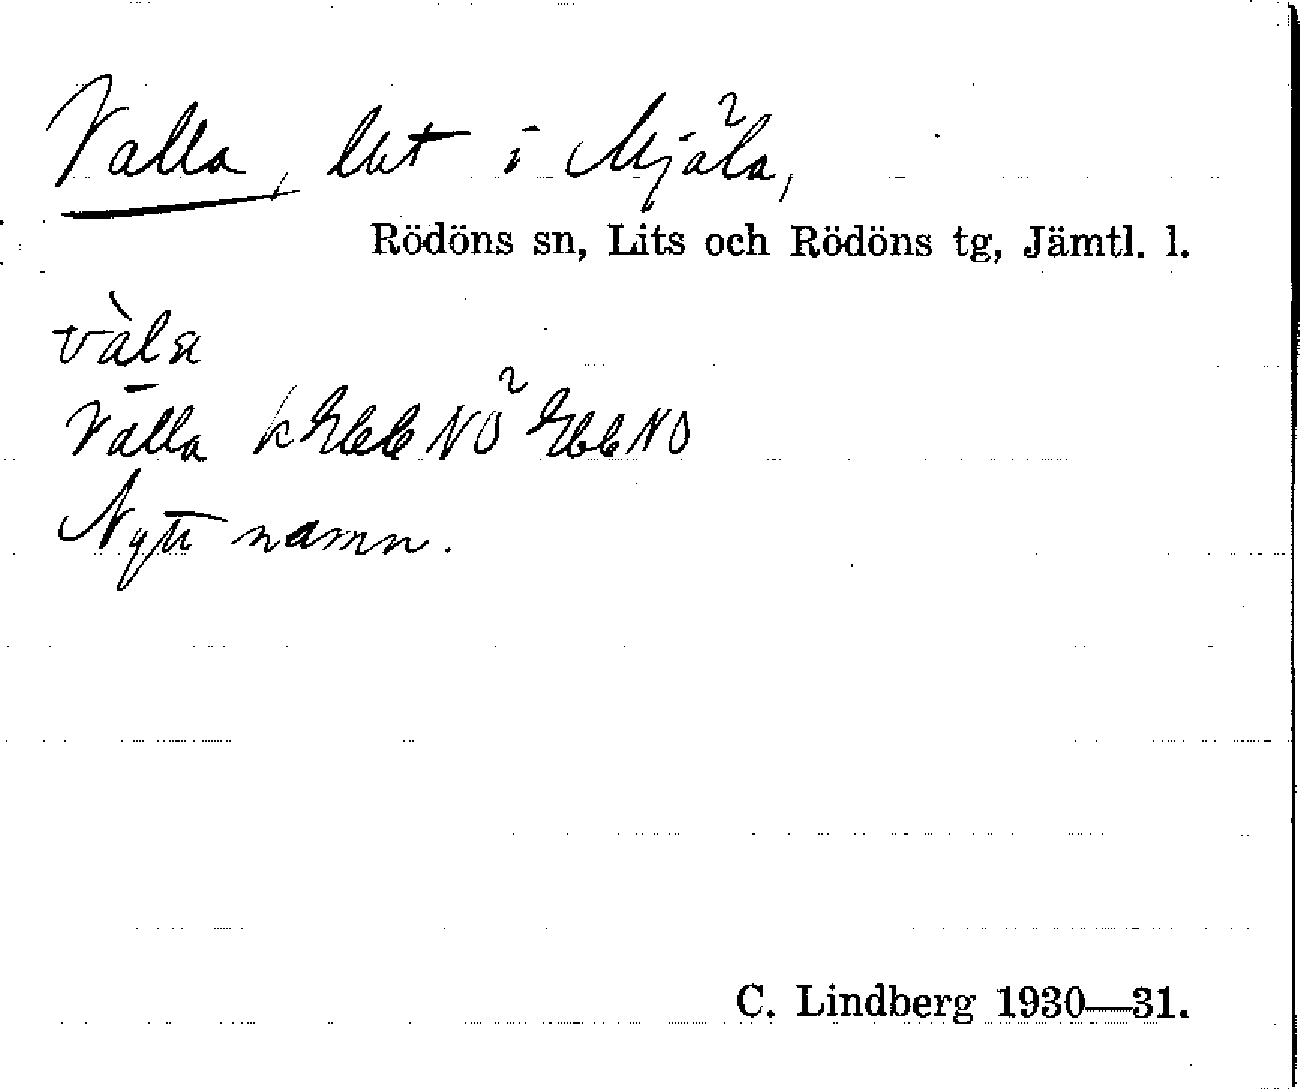 Valla, lht i Mjåla,
Rödöns sn, Lits och Rödöns tg, Jämtl. l.
vàla
Valla k Ebl NO Ebl NO
Nytt namn.
C. Lindberg 1930—31.